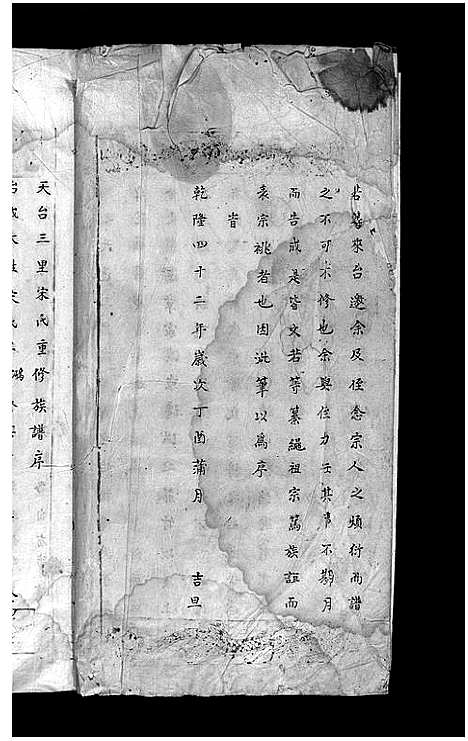 若等來台邀余及侄念宗人之頻衍而譜
之不可不修也余與侄力任其事不期月
而告成是皆文若等纂繩祖宗篤族誼而
袁宗祧者也因泚筆以為序
旹
乾隆四十二年歲次丁酉蒲月 吉旦
天台三里宋氏重修族譜序